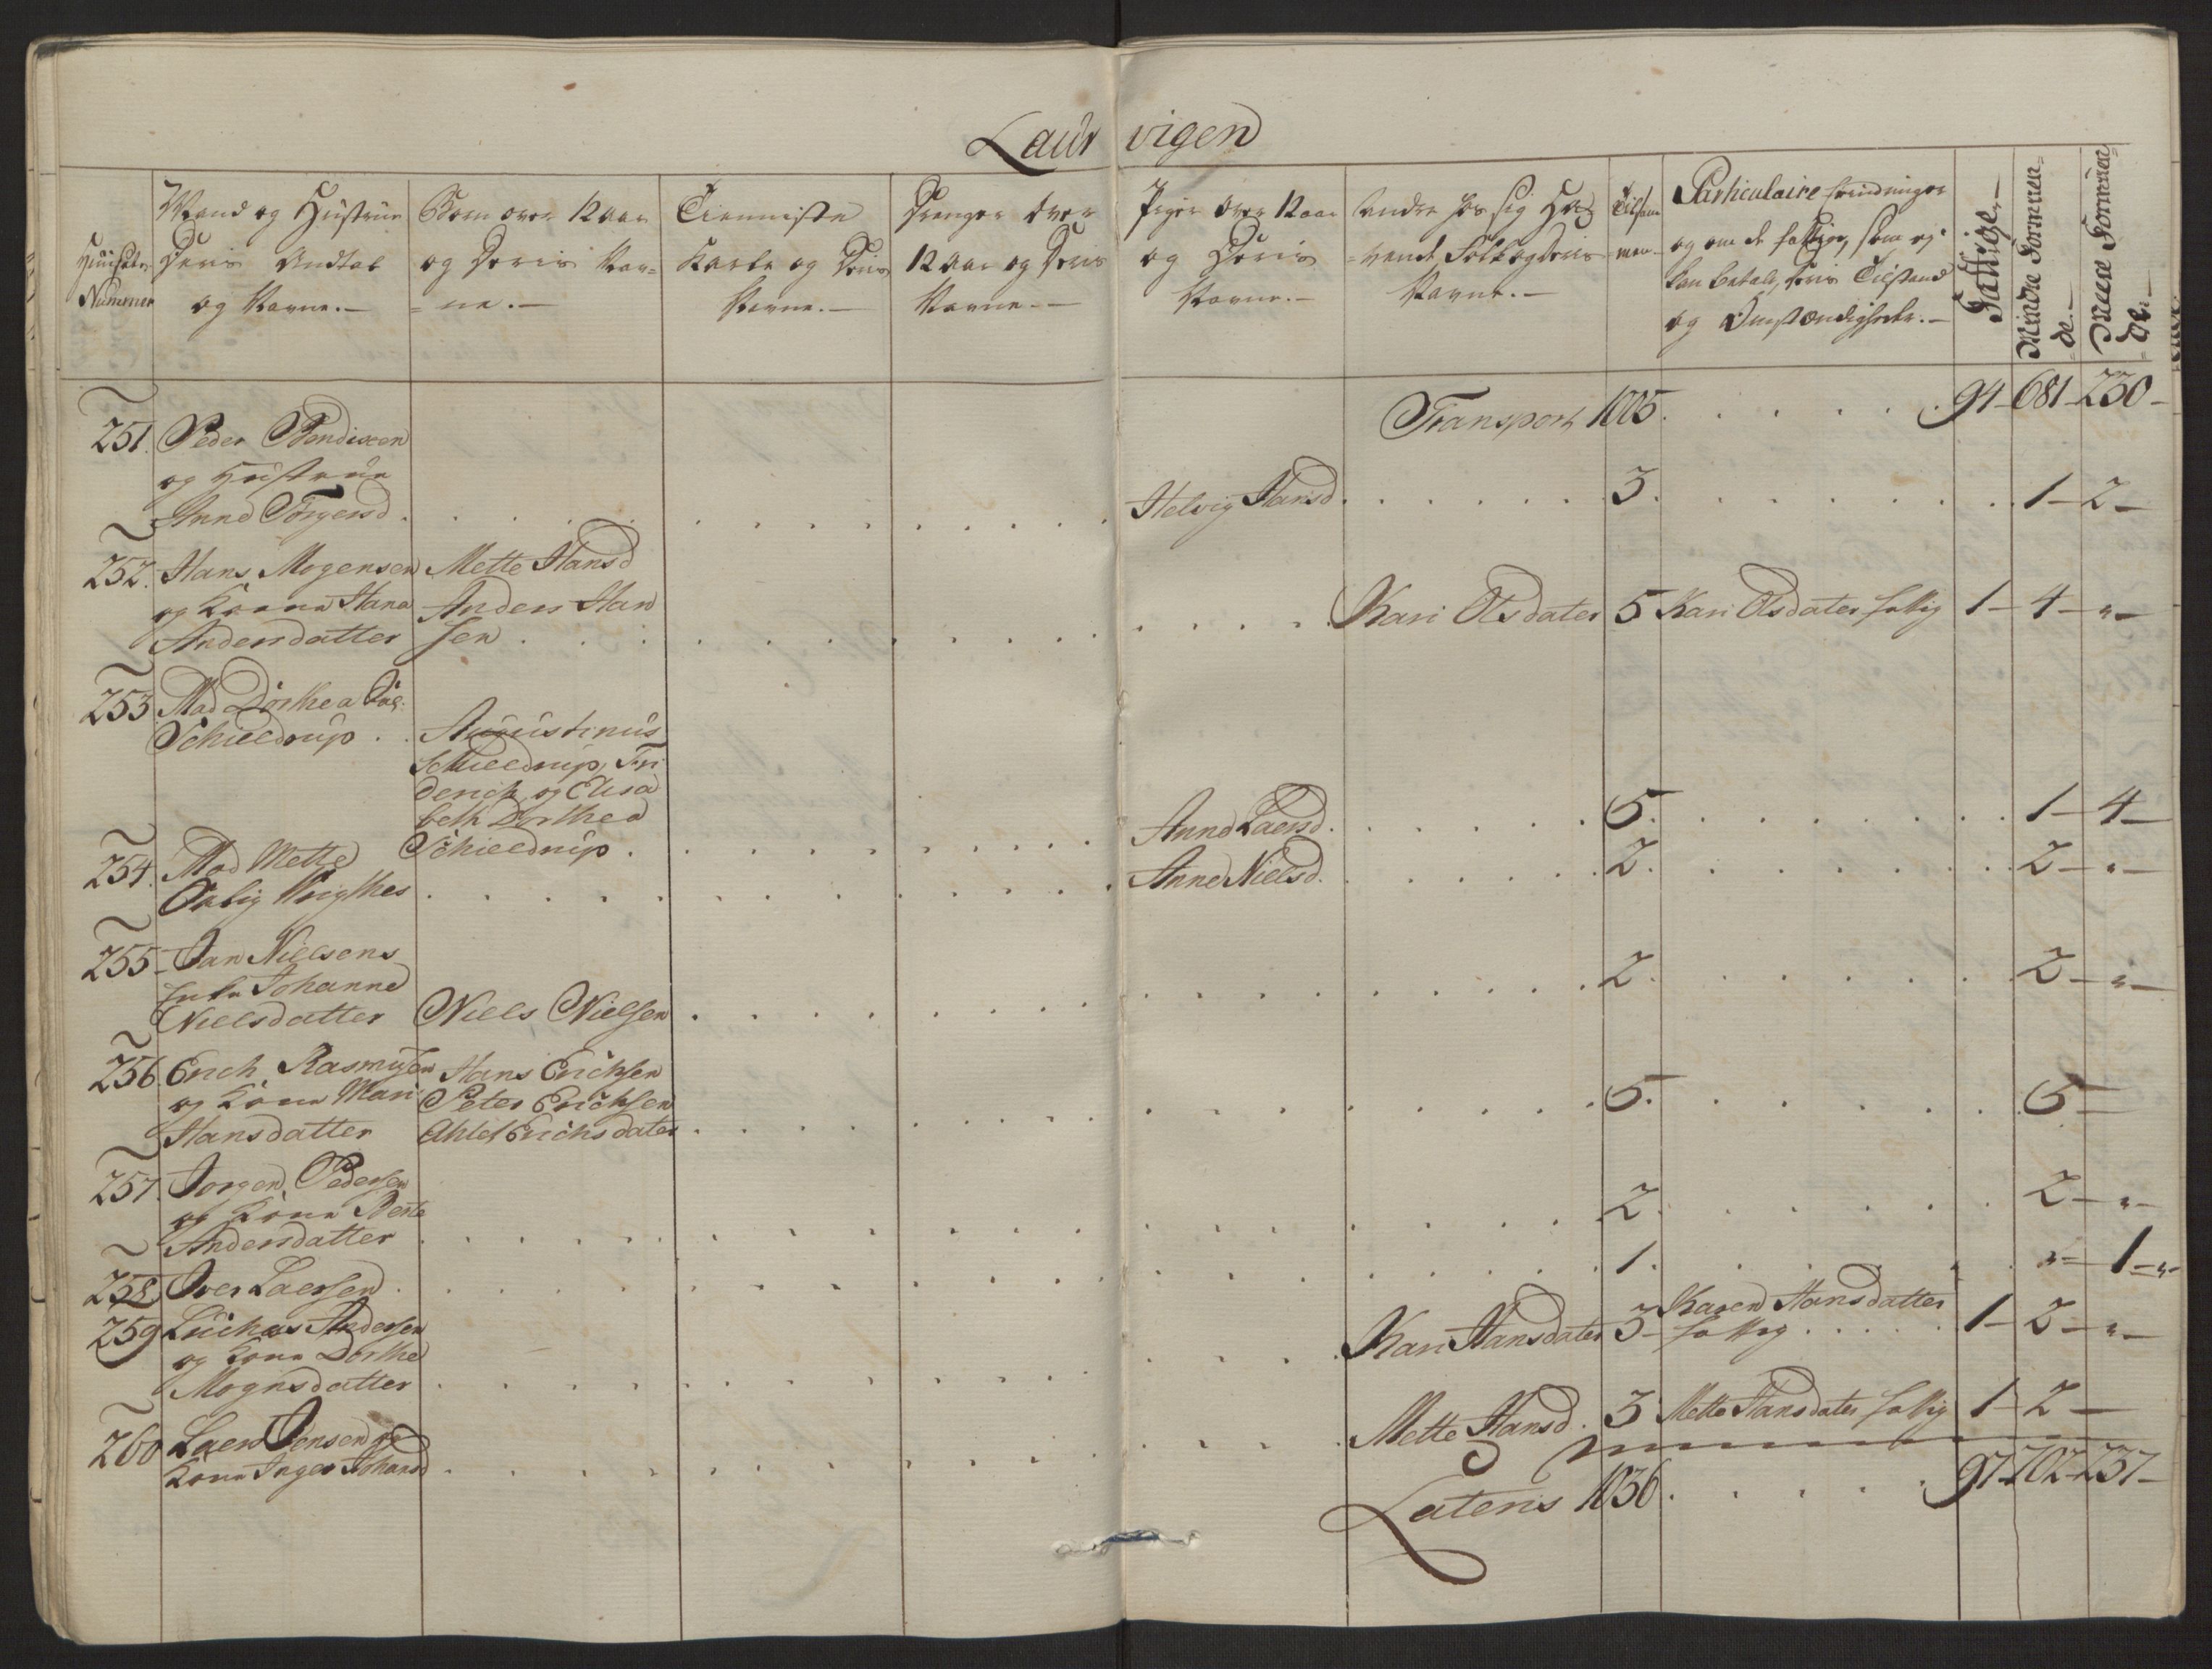 Laur vigen
Huusets Nummer
Mand og Hustrue Deris Andtal og Navne.—
Børn over 12 aar og Deris Nav= =ne.—
Tienniste Karle og Deris Navne.—
Drenger over 12 Aar og Deris Navne.—
Piger over 12 aar og Deris Navne.—
Andre hos sig Ha= =vende Folk og Deris Navne.—
Tilsam men
Particulaire
og om de fattige, som ej
kan betale, deris Tilstand
og Omstændigheder.—
Fattige.—
Mindre Formuen= =de.—
Meere Formuen= =de.—
Transport 1005. 94–681–230–
251. Peder Bendixen
og Hustrue
Anne Torgersd. Helvig Hansd. 3. 1–2–
252. Hans Mogensen Mette Hansd
og Kone Hana Anders Han
Andersdatter sen. Kari Olsdater 5 Kari Olsdater fattig 1–4–"–
253 Mad Dorthea Sal:
Schieldrup. Augustinus
Schieldrup, Fri
derich og Elisa
beth Dorthea
Schieldrup. Anne Laersd. 5. 1–4–
254. Mad Mette
Salig Wrigthes Anne Nielsd. 2. 2–"–
255– Jan Nielsens
Enke Johanne
Nielsdatter Niels Nielsen 2. 2–"–
256 Erich Rasmusen Hans Erichsen
og Kone Mari Peter Erichsen
Hansdatter Ahlet Erichsdater 5. 5–
257. Jorgen Pedersen
og Kone Berte
Andersdatter 2. 2–"–
258. Iver Laersen. 1. "–1–"–
259 Luchas Andersen
og Kone Dorthe
Mognsdatter Kari Hansdater 3– Karen Hansdatter
fattig 1–2–"–
260 Laers Jensen og
Kone Inger Johansd Mette Hansd. 3 Mette Hansdater fattig 1–2–
Lateris 1036. 97–702–237–